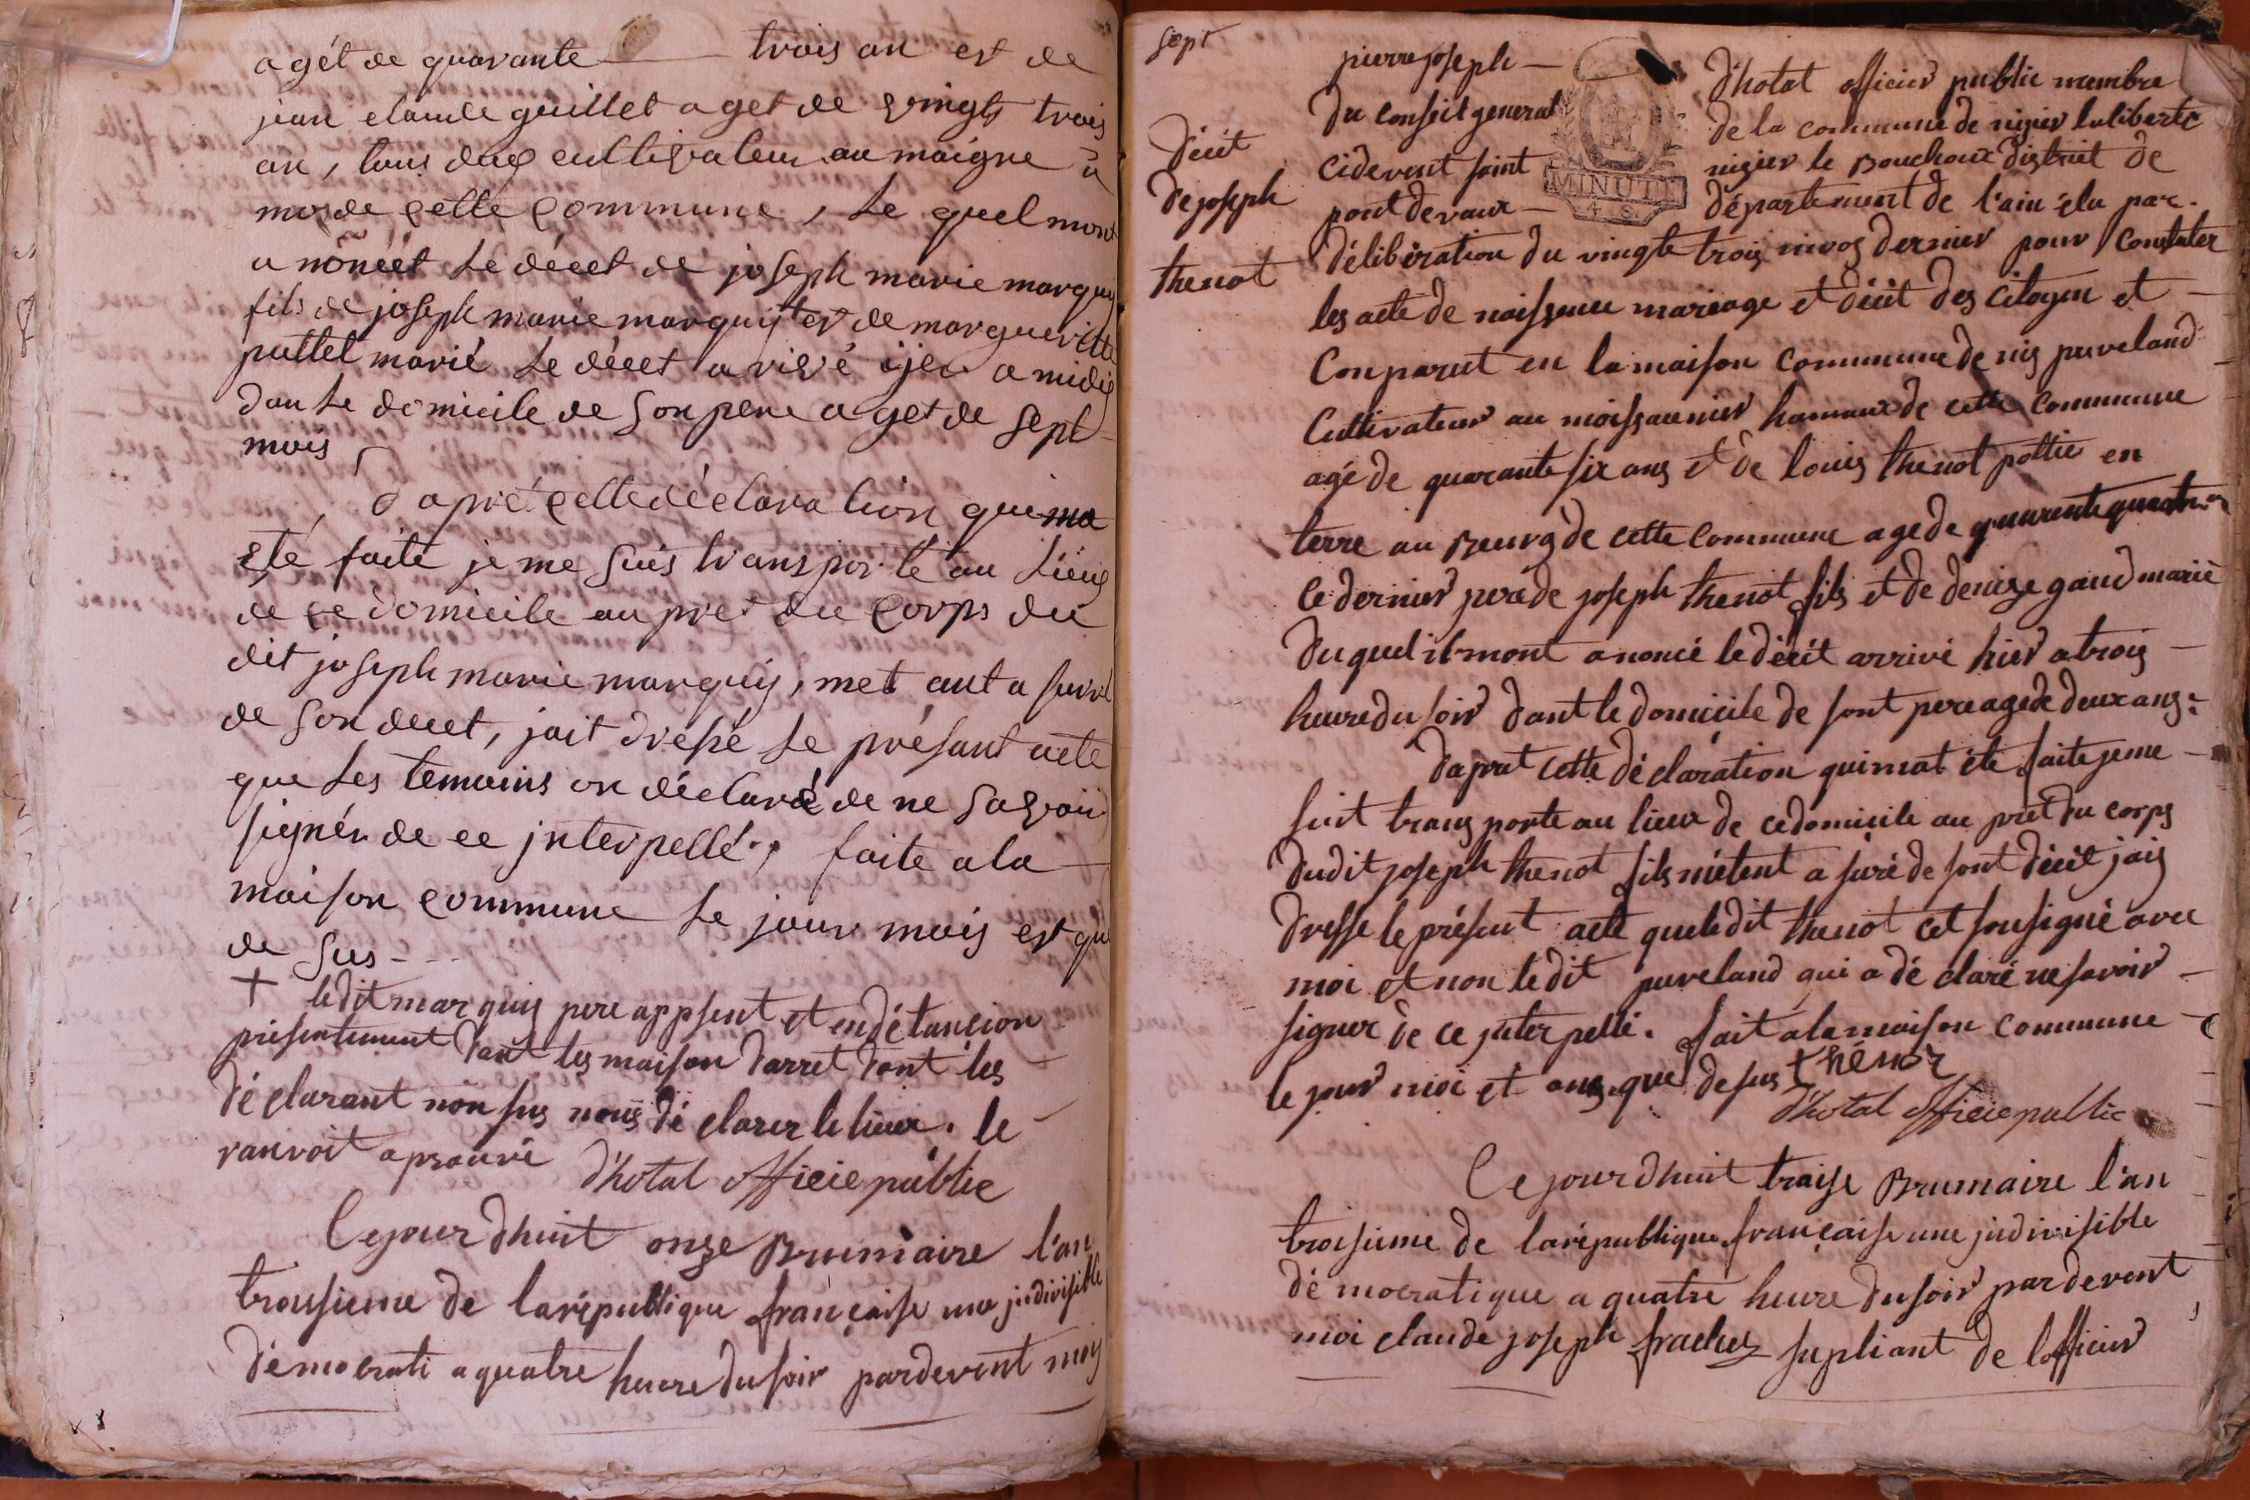 agét de quarante trois an et de
jean claude guillet aget de vingts trois
an, tous deux cultivateur au maigre a
mo de cette commune, le quel mont
a nonéét le décet de joseph marie marquis
fils de joseph marie marquis et de margueritte
puttet marié le décet a rivé ijer a midis
dan le domicile de son pere aget de sept
mois
d apret cette déclaration qui ma
eté faite je me suis transporté au lieus
de ce domicile au pret du corps du
dit joseph marie marquis, met ant a suré
de son decet, jait dressé le présant acte
que les temoins on déclaré de ne sagvoir
signér de ce jnterpellé., faite a la
maison commune le jour mois est que
de sus - - -
+ ledit marquis pere appsent et en détancion
présentement dant les maison darret dont les
déclarant non sus nous dé clarer le lieux. le
ranvoit aprouvé d'hotal officie public
Cejour dhuit onze Brumaire l'an
troisieme de la république française une jndivisible
démocrati a quatre heure du soir pardevent moy
sept
pierre joseph — d'hotal officier public membre
du conseit general de la commune de nizier la liberté
cidevent saint nizier le Bouchoux district de
pont devaux — département de l'ain élu par
MINUTE
4 S
Décét
de joseph
thenot
délibération du vingte trois nivos dernier pour constater
les acte de naissance mariage et décét des citoyen et —
Conparut en la maison commune de nis puveland
Cultivateur au moissaunier hamaux de cette commune
agé de quarante six ans et de louis thenot pottié en
terre au Bourg de cette commune age de quarente quatre
ce dernier pere de joseph thenot fils et de denize gaud marié
duquel il mont anoncé le décét arrivé hier a trois —
heure du soir dant le domicile de sont pere agé de deux ans
daprat cette dé claration qui mat été faite je me —
suit trans porte au lieux de cedomicile au prét du corps
dudit joseph thenot fils métent a suré de sont décét jais
dresse le présent acte queledit thenot cet sousigné avec
moi et non ledit puveland qui a dé claré ne savoir —
signer de ce jnter pellé. fait a la maison commune
le jour moi et ans que de sus thénot
d'hotal officie public
Ce jour dhuit traise Brumaire l'an
troisieme de la république française une jndivisible
dé mocratique a quatre heure du soir par devent
moi claude joseph frachez supliant de lofficier